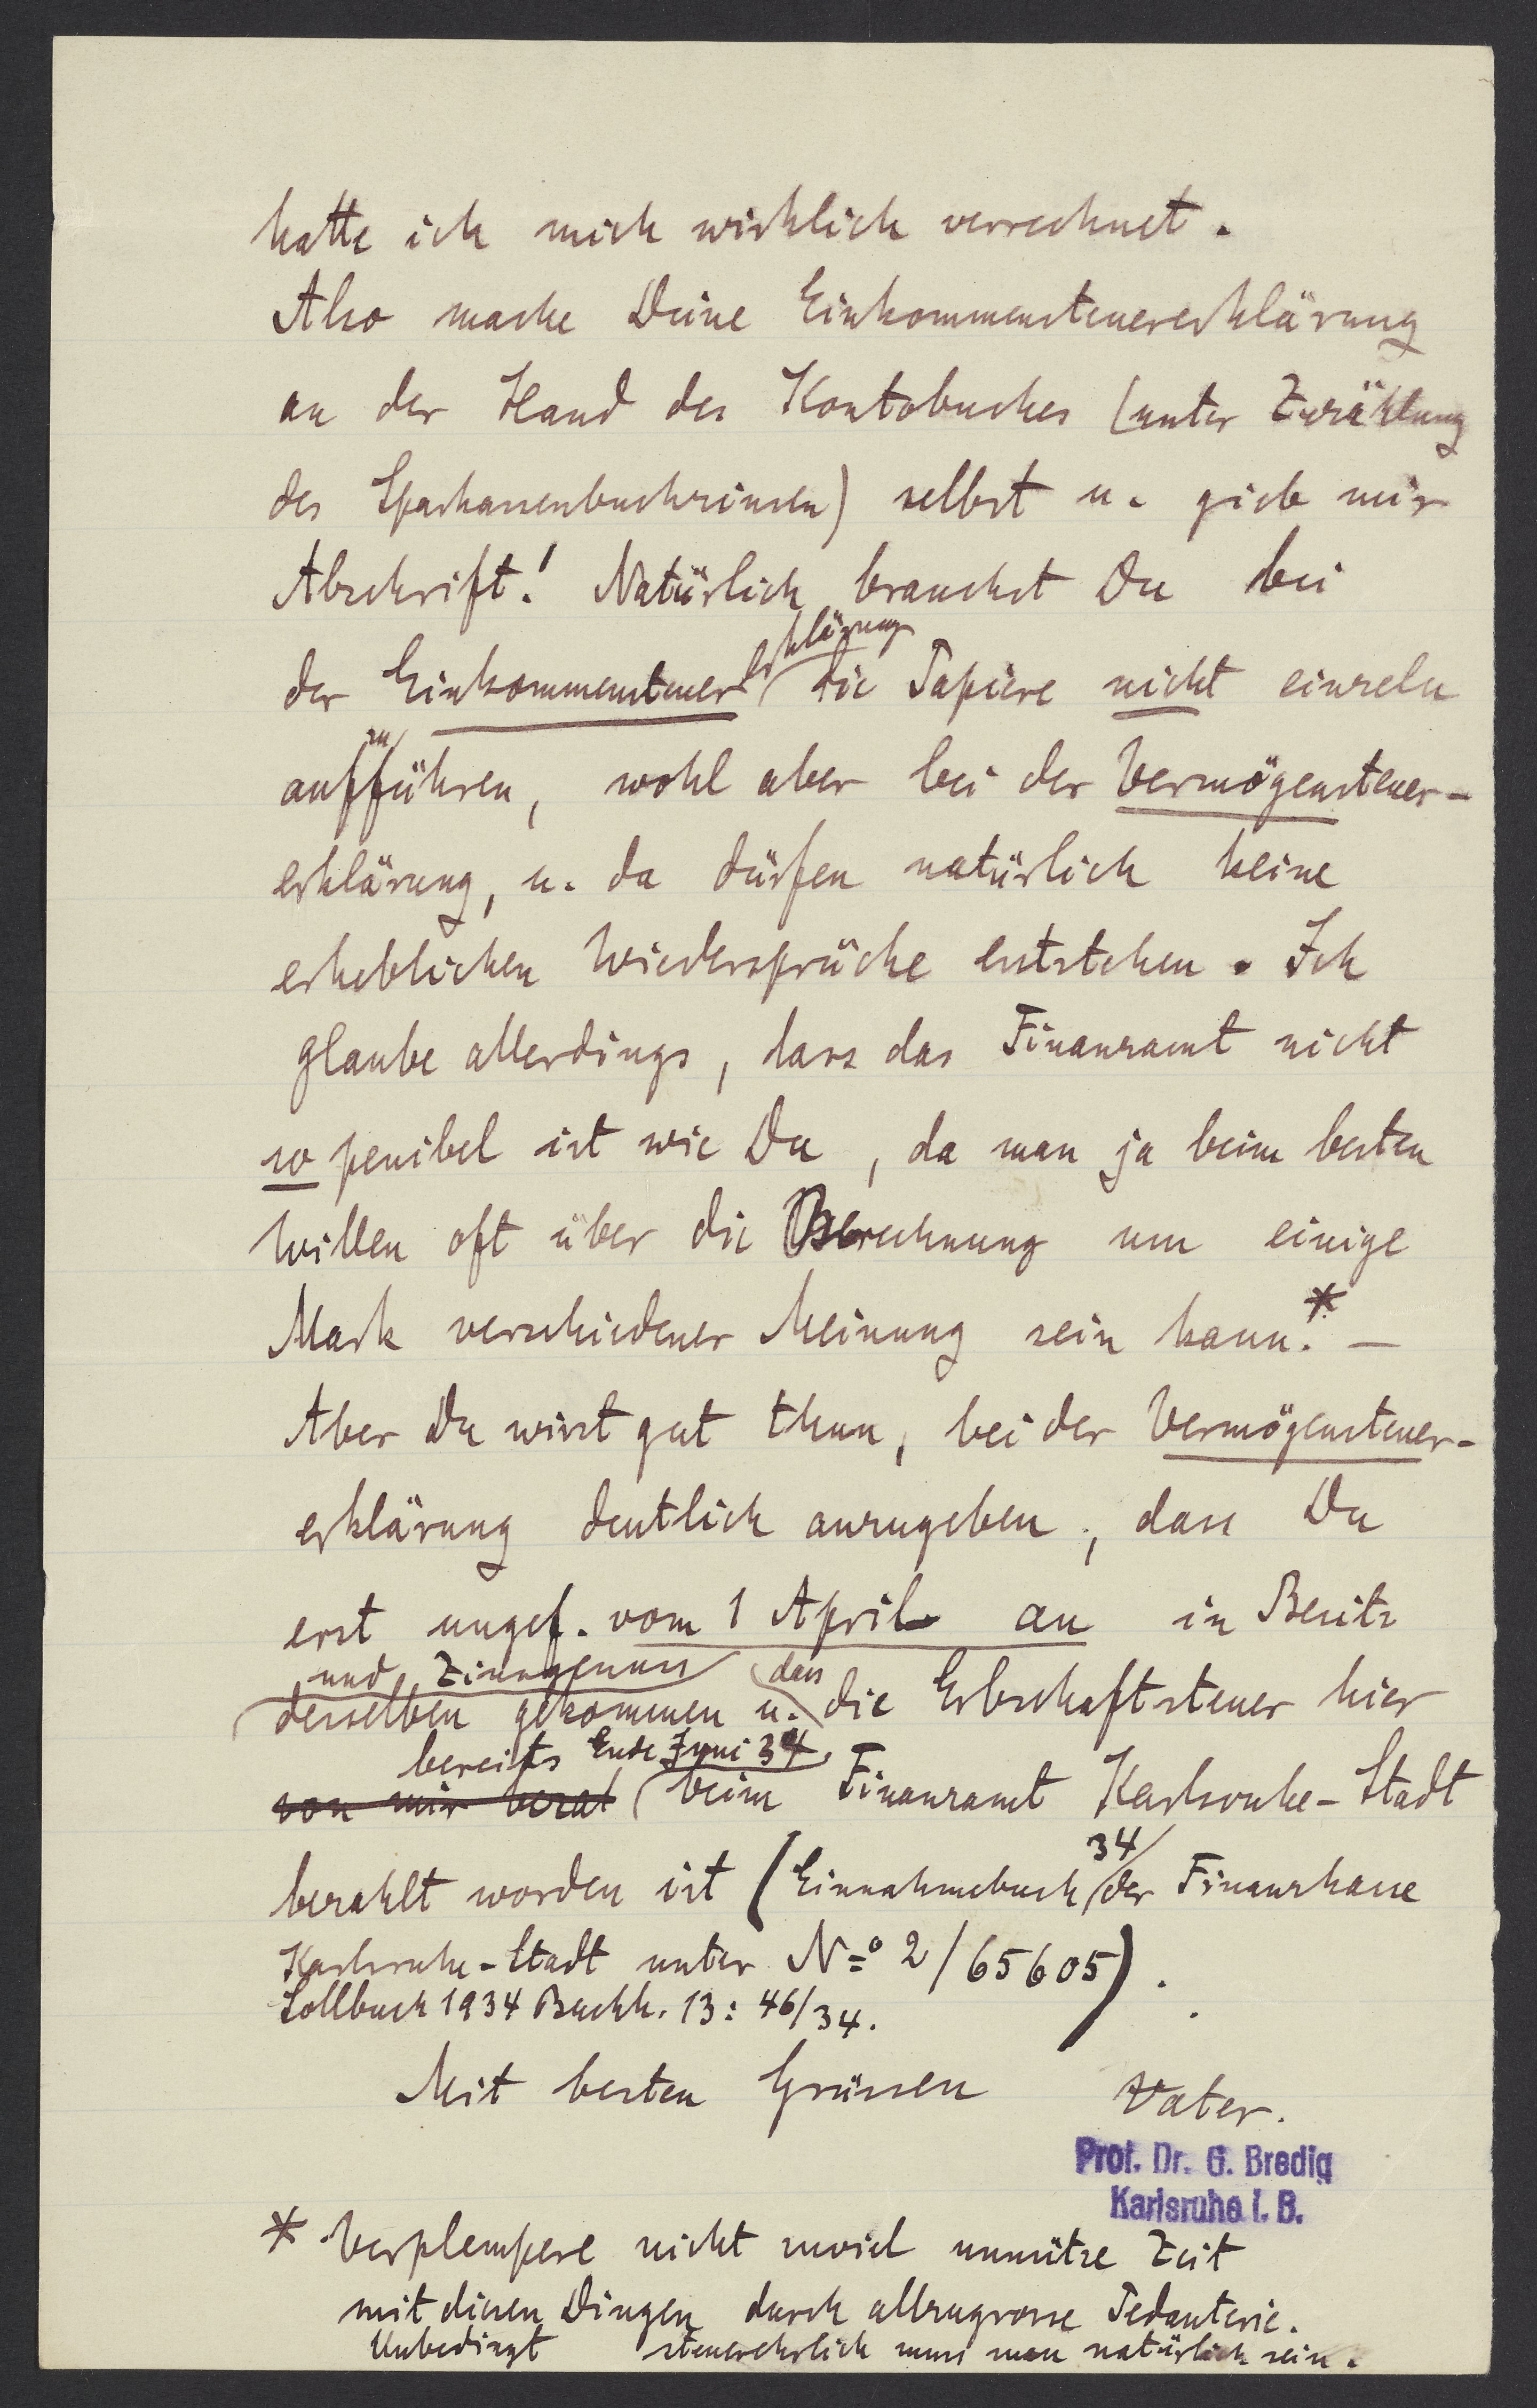 hatte ich mich wirklich verrechnet.
Also mache Deine Einkommensteuererklärung
an der Hand des Kontobuches (unter Zuzählung
des Sparkassenbuchzinsen) selbst u. gieb mir
Abschrift! Natürlich brauchst Du bei
erklärung
der Einkommensteuer die Papiere nicht einzeln
zu
aufführen, wohl aber bei der Vermögensteuer-
erklärung, u. da dürfen natürlich keine
erheblichen Wiedersprüche entstehen. Ich
glaube allerdings, dass das Finanzamt nicht
so penibel ist wie Du, da man ja beim besten
Willen oft über die Berechnung um einige
Mark verschiedener Meinung sein kann.* —
Aber Du wirst gut thun, bei der Vermögensteuer-
erklärung deutlich anzugeben, dass Du
erst ungef. vom 1 April an in Besitz
und Zinsgenuss dass
desselben gekommen u. die Erbschaftsteuer hier
bereits Ende Juni 34
von mir bezal beim Finanzamt Karlsruhe-Stadt
34
bezahlt worden ist (Einnahmebuch der Finanzkasse
Karlsruhe-Stadt unter Nº 2/65605).
Sollbuch 1934 Buchh. 13: 46/34.
Mit besten Grüssen Vater.
Prof. Dr. G. Bredig
Karlsruhe i. B.
* Verplempere nicht zuviel unnütze Zeit
mit diesen Dingen durch allzugrosse Pedanterie.
Unbedingt steuerehrlich muss man natürlich sein.